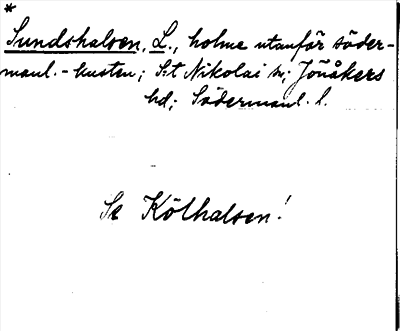 *
Sundshalsen, L., holme utanför söder-
manl.-kusten; S:t Nikolai sn; Jönåkers
hd; Södermanl. l.
Se Kölhalsen!